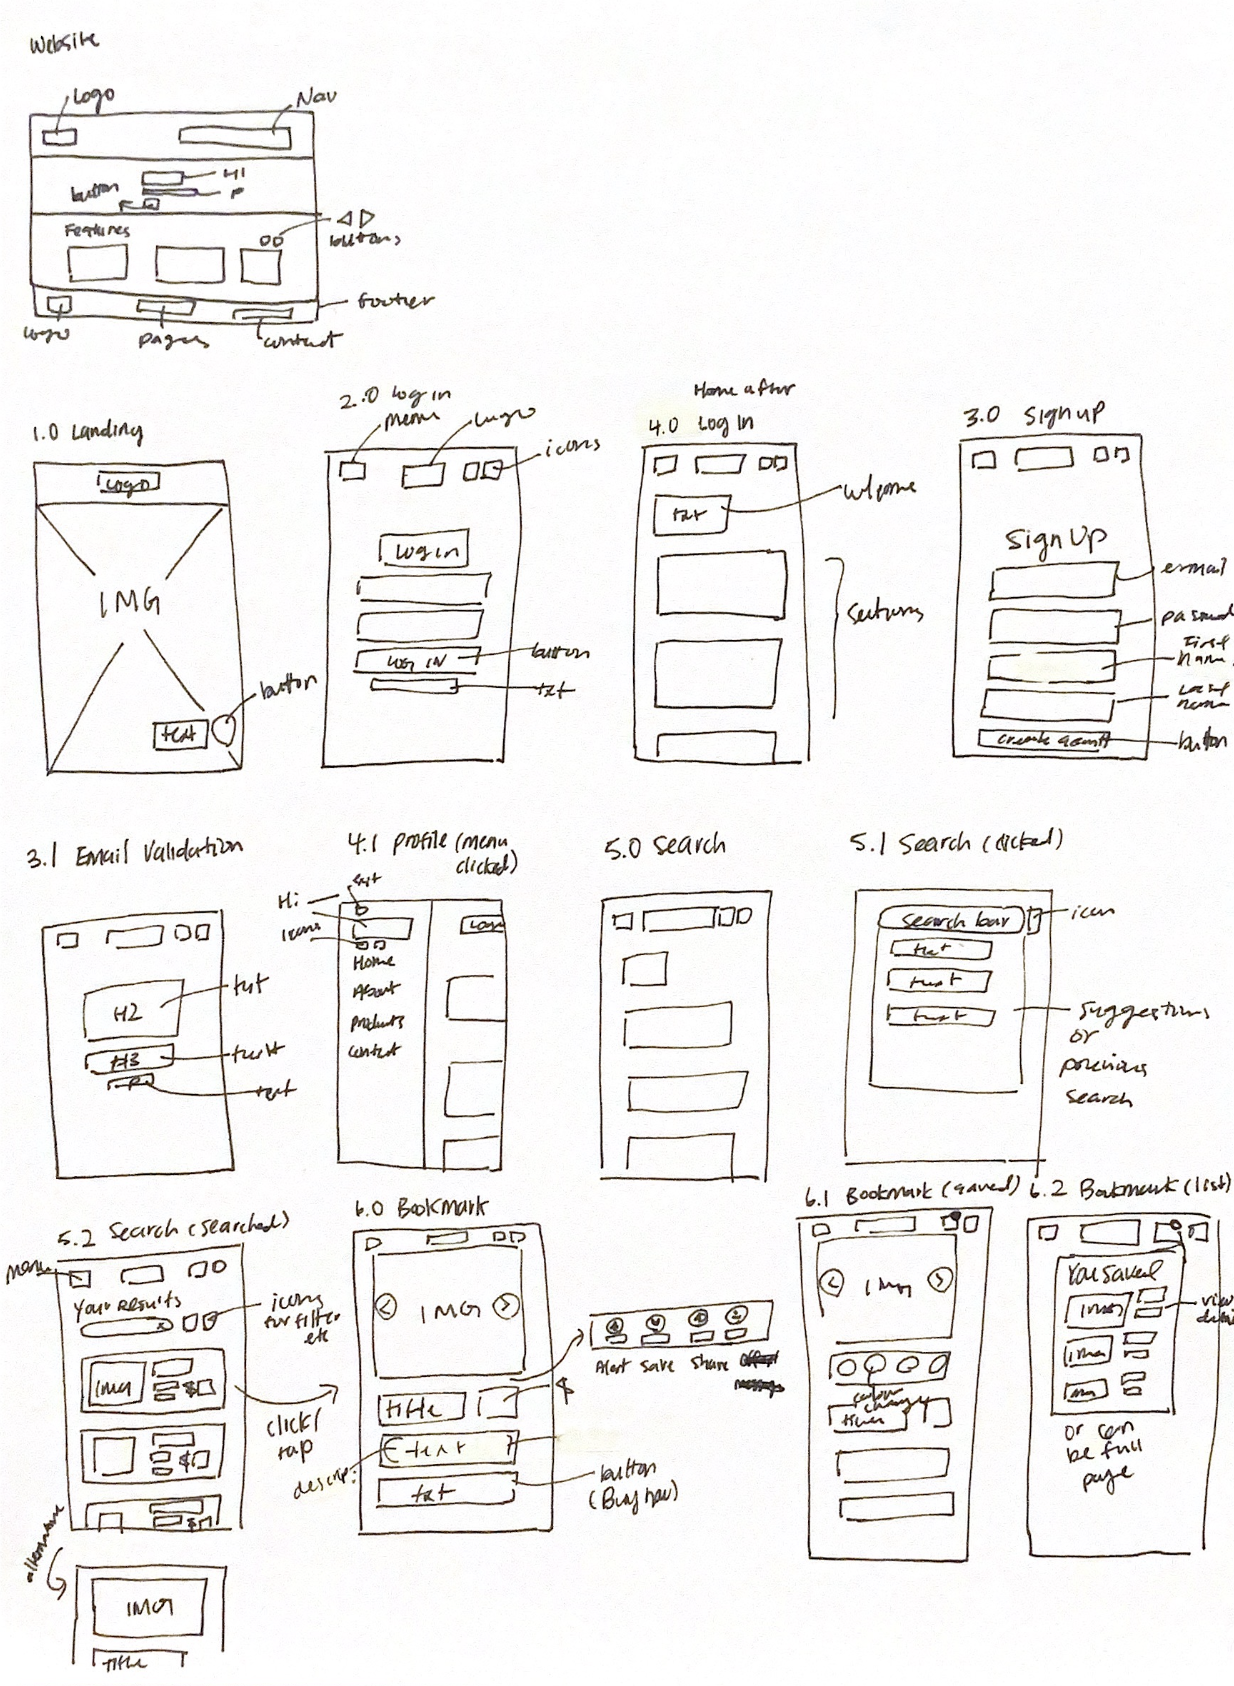 Website
Logo
Nav
H1
P
button
Features
buttons
footer
Logo
pages
contact
1.0 Landing
Logo
IMG
button
text
2.0 Log in
menu
Logo
icons
Log in
LOG IN
button
txt
Home after
4.0 Log In
welcome
txt
sections
3.0 Sign up
Sign Up
e-mail
First
name
Last
name
button
3.1 Email Validation
H2
txt
H3
text
text
4.1 Profile (menu
clicked)
Hi
icons
Home
About
Products
Contact
5.0 Search
5.1 Search (clicked)
search bar
icon
txt
text
text
suggestions
or
previous
search
5.2 Search (searched)
menu
Your Results
icons
for filter
etc
IMG
$
$
$
click/
tap
alternative
IMG
Title
6.0 Bookmark
IMG
Title
$
Alert
Save
Share
descrip.
text
txt
button
(Buy now)
6.1 Bookmark (saved)
IMG
colour
change
6.2 Bookmark (list)
You saved
IMG
IMG
IMG
or can
be full
page